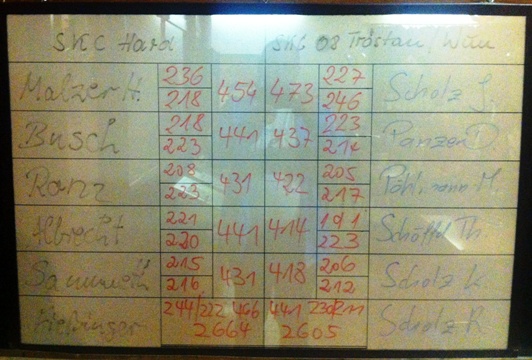 SKC Hard SKC 08 Tröstau/Wun
Malzer H. 236 454 473 227 Scholz J.
218 246
Busch 218 441 437 223 Panzer D.
223 214
Ranz 208 431 422 205 Pöhlmann M.
223 217
Albrecht 221 441 414 191 Schöffel Th
220 223
215 431 418 206 Scholz K.
216 212
244/222 466 441 Scholz R
2664 2605